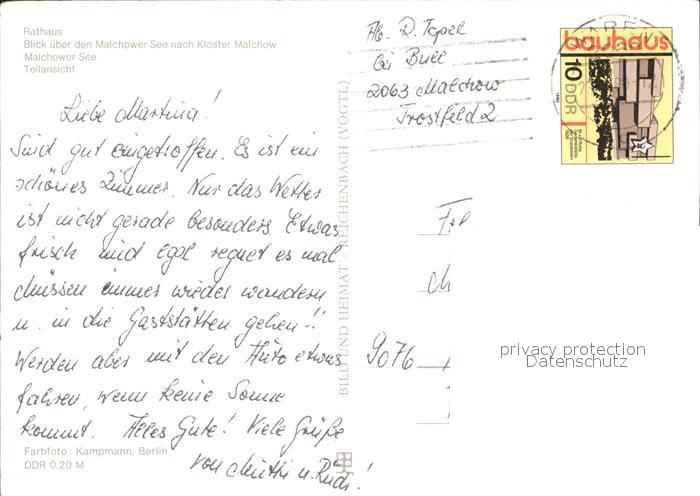 Rathaus
Blick über den Malchower See nach Kloster Malchow
Malchower See
Teilansicht
Liebe Martina!
Sind gut eingetroffen. Es ist ein
schönes Zimmer. Nur das Wetter
ist nicht gerade besonders. Etwas
frisch und egal regnet es mal
Müssen immer wieder wandern
u. in die Gaststätten gehen!!
Werden aber mit den Auto etwas
fahren, wenn keine Sonne
kommt. Alles Gute! Viele Grüße
von Mutti u. Rudi!
Farbfoto: Kampmann, Berlin
DDR 0,20 M
BILD UND HEIMAT · REICHENBACH (VOGTL)
Ab. R. Topel
bei Bull
2063 Malchow
Trostfeld 2
bauhaus
10 DDR
1980
9076
privacy protection
Datenschutz